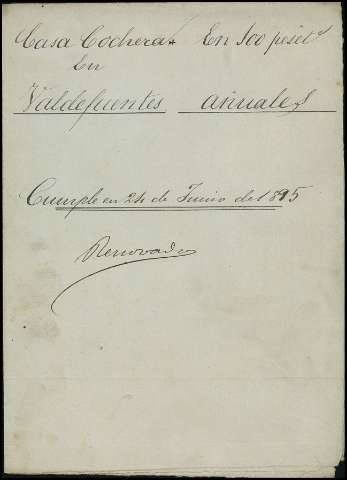 Casa Cochera En 100 pesetas
en
Valdefuentes anuales
Cumple en 24 de Junio de 1895
Renovado